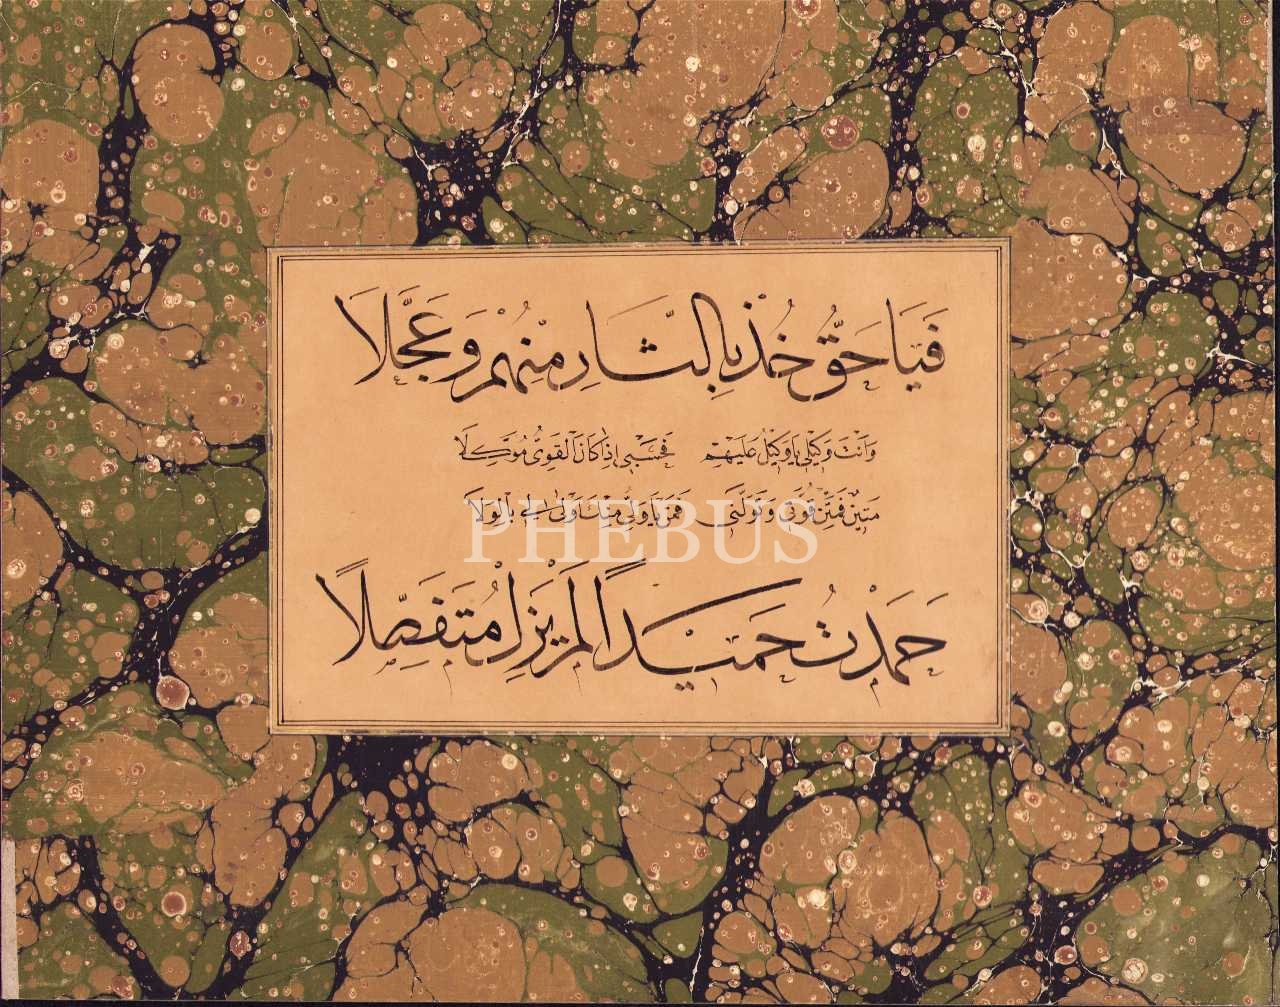 فَيَا حَقُّ خُذْ بِالثَّارِ مِنْهُمْ وَعَجِّلَا
وَأَنْتَ وَكِيْلِي يَا وَكِيْلُ عَلَيْهِمْ فَحَسْبِي إِذَا كَانَ الْقَوِيُّ مُوَكَّلَا
مَتِيْنٌ فَمَتِّنْ قُوَّتِي وَتَوَلَّنِي يَا وَلِيُّ بِالْوِلَا
حَمَدْتُ حَمِيْدًا لَمْ يَزَلْ مُتَفَضِّلًا
PHEBUS